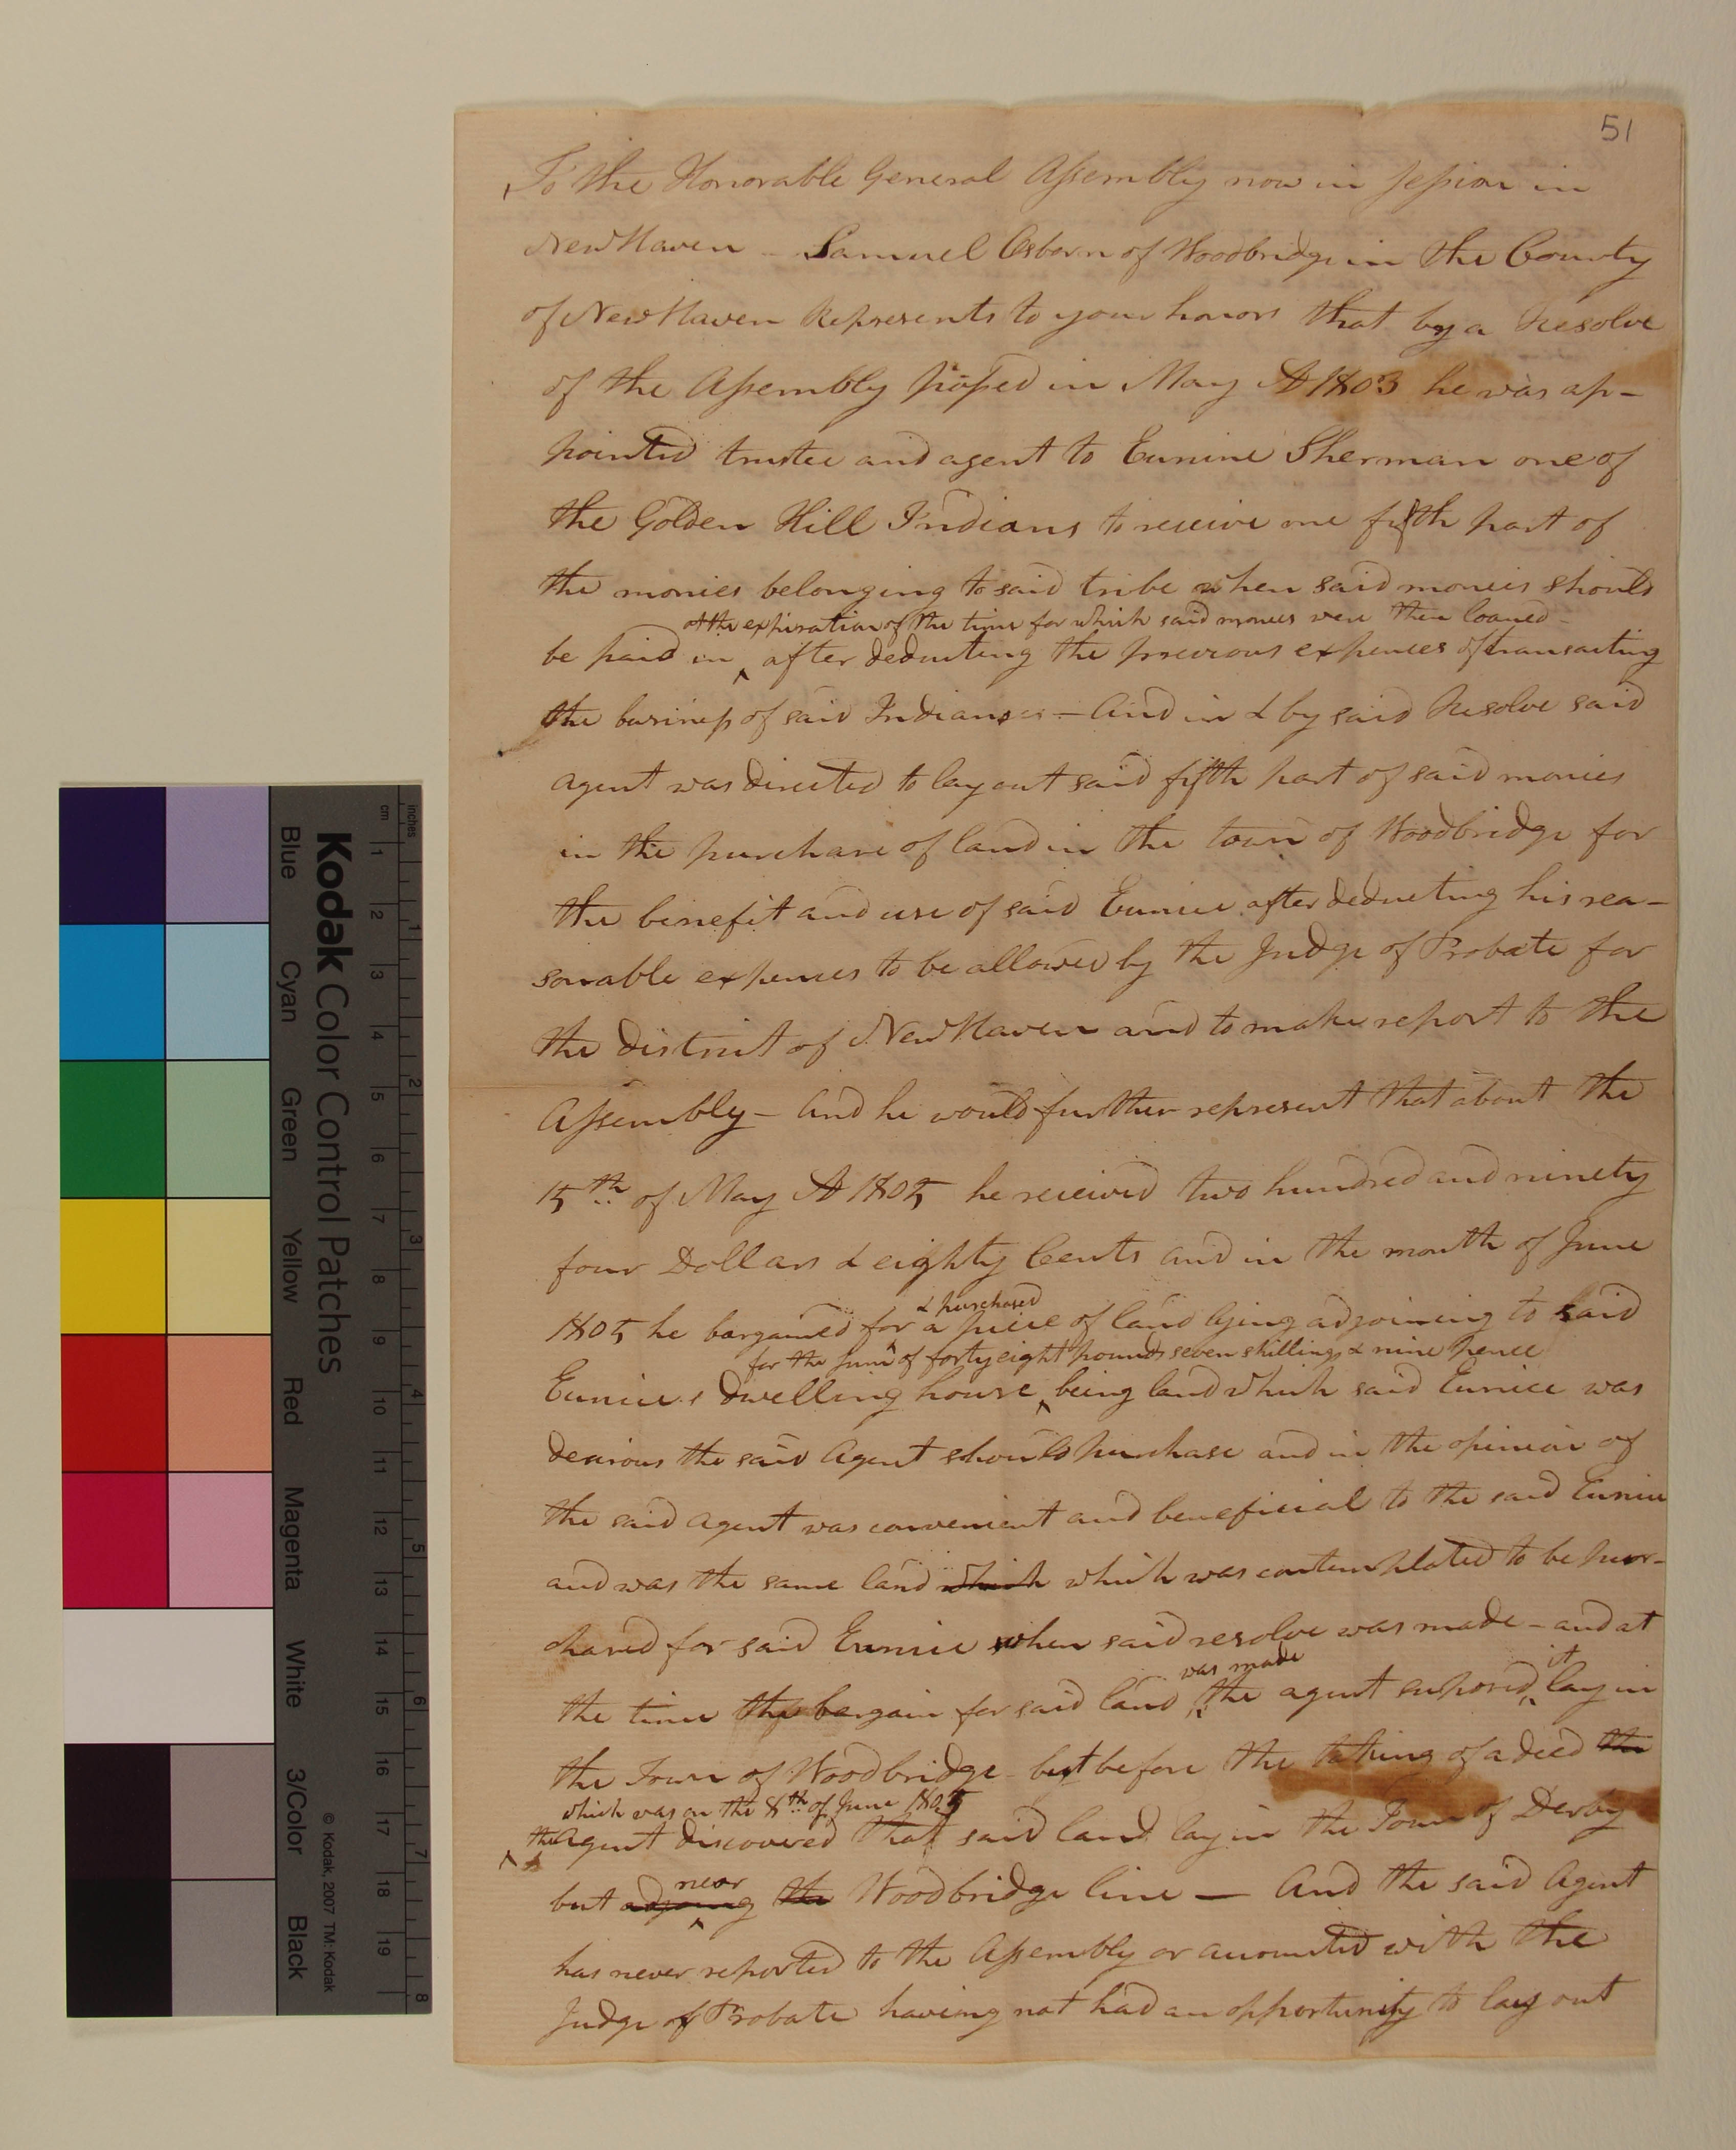 51
To the Honorable General Assembly now in Session in
New Haven - Samuel Osborn of Woodbridge in the County
of New Haven Represents to your honors that by a Resolve
of the Assembly passed in May AD 1803 he was ap-
pointed trustee and agent to Eunice Sherman one of
the Golden Hill Indians to receive one fifth part of
the monies belonging to said tribe when said monies should
at the expiration of the time for which said monies were then loaned -
be paid in ‸ after deducting the previous expences of transacting
the business of said Indians - And in & by said Resolve said
agent was directed to lay out said fifth part of said monies
in the purchase of land in the town of Woodbridge for
the benefit and use of said Eunice after deducting his rea-
sonable expences to be allowed by the Judge of Probate for
the district of New Haven and to make report to the
Assembly - And he would further represent that about the
15th of May AD 1805 he received two hundred and ninety
four Dollars & eighty Cents and in the month of June
& purchased
1805 he bargained for a piece of land lying adjoining to said
for the sum of forty eight pounds seven shillings & nine pence
Eunices dwelling house ‸ being land which said Eunice was
desirous the said Agent should purchase and in the opinion of
the said agent was convenient and beneficial to the said Eunice
and was the same land which which was contemplated to be pur-
chased for said Eunice when said resolve was made - and at
was made it
the time the bargain for said land ‸ the agent suposed ‸ lay in
the Town of Woodbridge but before the taking of a deed the
which was on the 8th of June 1805
the Agent discovered that said land lay in the Town of Derby
near
but adjoing the Woodbridge line — And the said Agent
has never reported to the Assembly or accounted with the
Judge of Probate having not had an opportunity to lay out
Kodak Color Control Patches
Blue Cyan Green Yellow Red Magenta White 3/Color Black
© Kodak, 2007 TM: Kodak
inches 1 2 3 4 5 6 7 8
cm 1 2 3 4 5 6 7 8 9 10 11 12 13 14 15 16 17 18 19